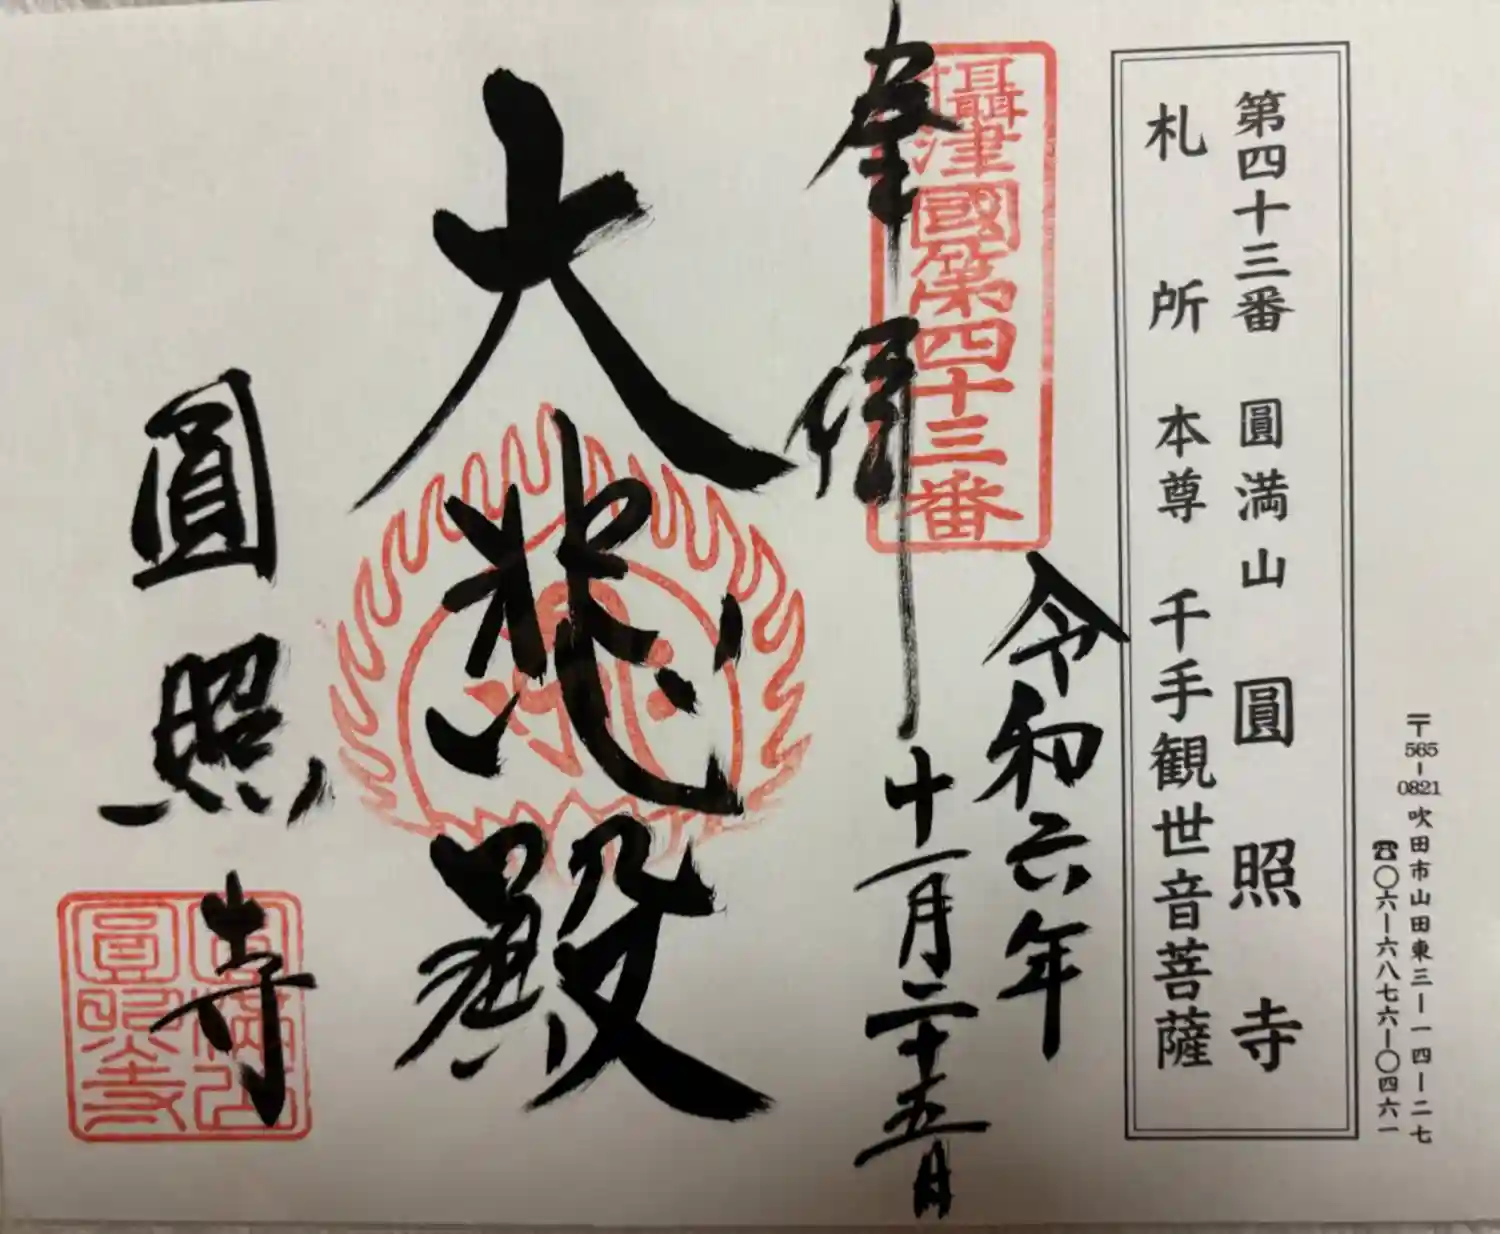 〒565-0821 吹田市山田東三ー一四ー二七
☎〇六ー六八七六ー〇四六一
第四十三番 圓満山 圓照寺
札所 本尊 千手観世音菩薩
攝津國第四十三番
奉拝
令和六年
十一月二十五日
大悲殿
圓照寺
圓満山
圓照寺